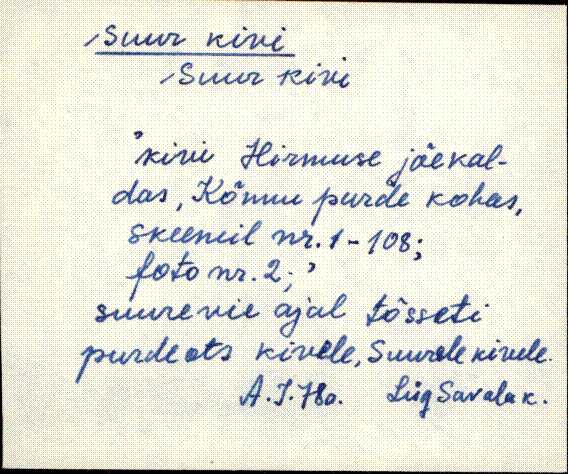 Suur kivi
Suur kivi
"kivi Hirmuse jõekal-
das, Kõmu purde kohas,
skeemil nr. 1-108;
foto nr. 2;"
suurevie ajal tõsseti
purdeots kivele, Suurele kivele.
A.J.78a. Lüg Savala k.